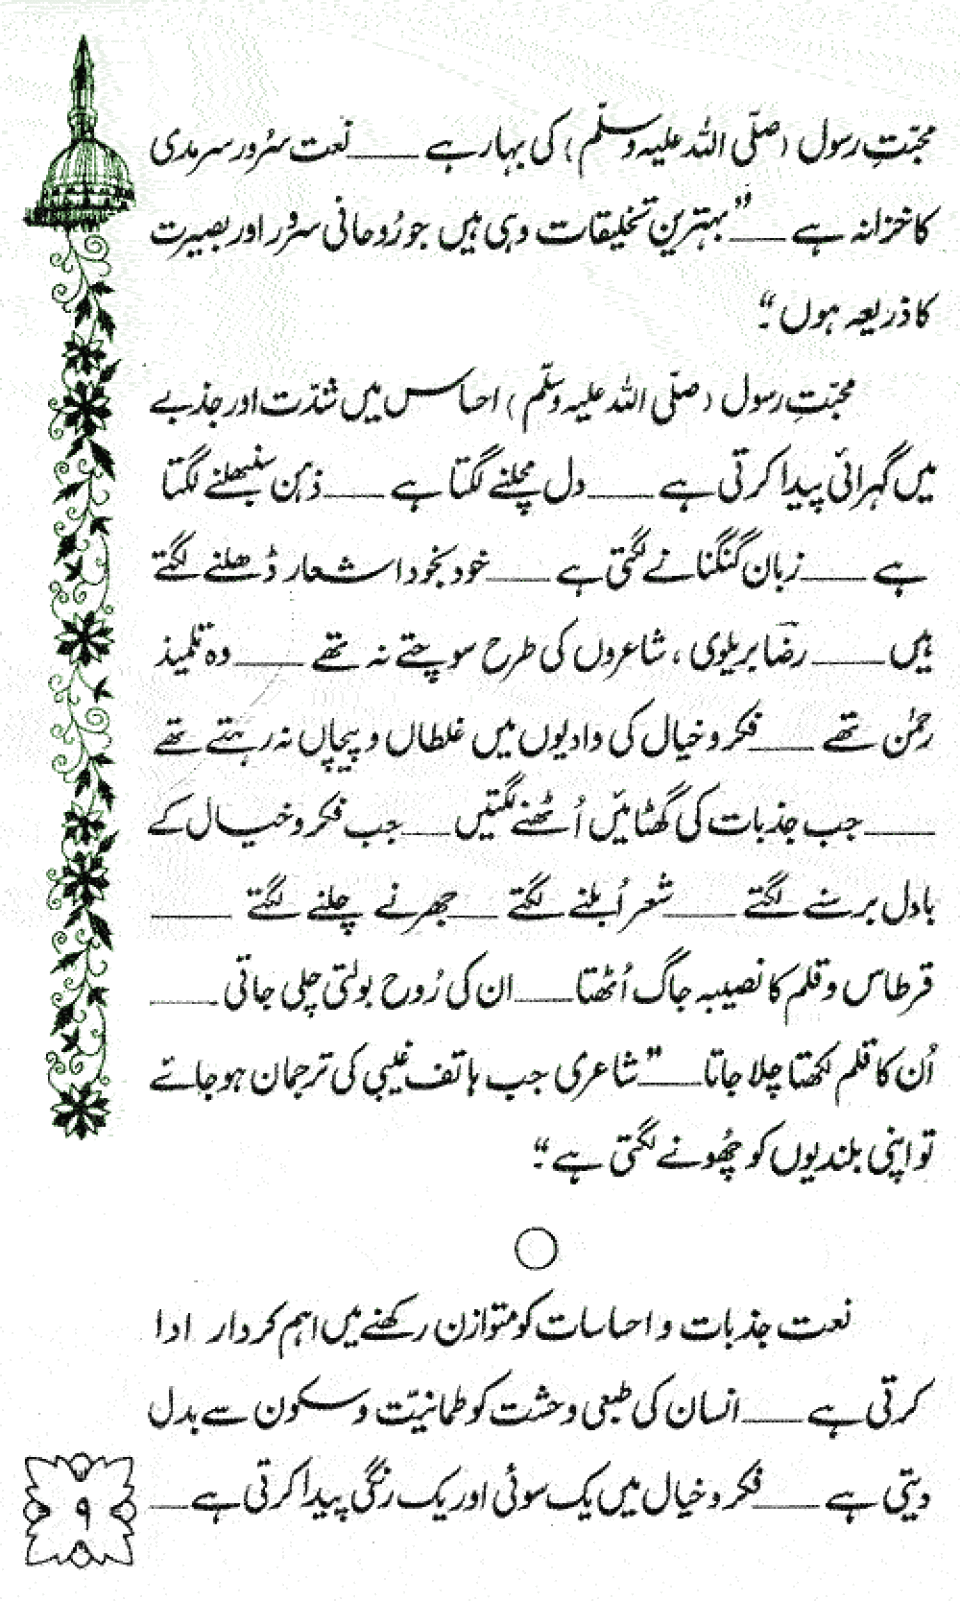 محبّتِ رسول (صلّی اللہ علیہ وسلّم) کی بہار ہے ____ نعت سُرورِ سرمدی
کا خزانہ ہے ____ ”بہترین تخلیقات وہی ہیں جو رُوحانی سرُور اور بصیرت
کا ذریعہ ہوں۔“
محبّتِ رسول (صلّی اللہ علیہ وسلّم) احساس میں شدّت اور جذبے
میں گہرائی پیدا کرتی ہے ____ دل مچلنے لگتا ہے ____ ذہن سنبھلنے لگتا
ہے ____ زبان گنگنانے لگتی ہے ____ خود بخود اشعار ڈھلنے لگتے
ہیں ____ رضاؔ بریلوی، شاعروں کی طرح سوچتے نہ تھے ____ وہ تلمیذِ
رحمٰن تھے ____ فکر و خیال کی وادیوں میں غلطاں و پیچاں نہ رہتے تھے
____ جب جذبات کی گھٹائیں اُٹھنے لگتیں ____ جب فکر و خیال کے
بادل برسنے لگتے ____ شعر اُبلنے لگتے ____ جھرنے چلنے لگتے ____
قرطاس و قلم کا نصیبہ جاگ اُٹھتا ____ ان کی رُوح بولتی چلی جاتی ____
اُن کا قلم لکھتا چلا جاتا ____ ”شاعری جب ہاتف غیبی کی ترجمان ہو جائے
تو اپنی بلندیوں کو چُھونے لگتی ہے۔“
نعت جذبات و احساسات کو متوازن رکھنے میں اہم کردار ادا
کرتی ہے ____ انسان کی طبعی وحشت کو طمانیّت و سکون سے بدل
دیتی ہے ____ فکر و خیال میں یک سوئی اور یک رنگی پیدا کرتی ہے ____
۹